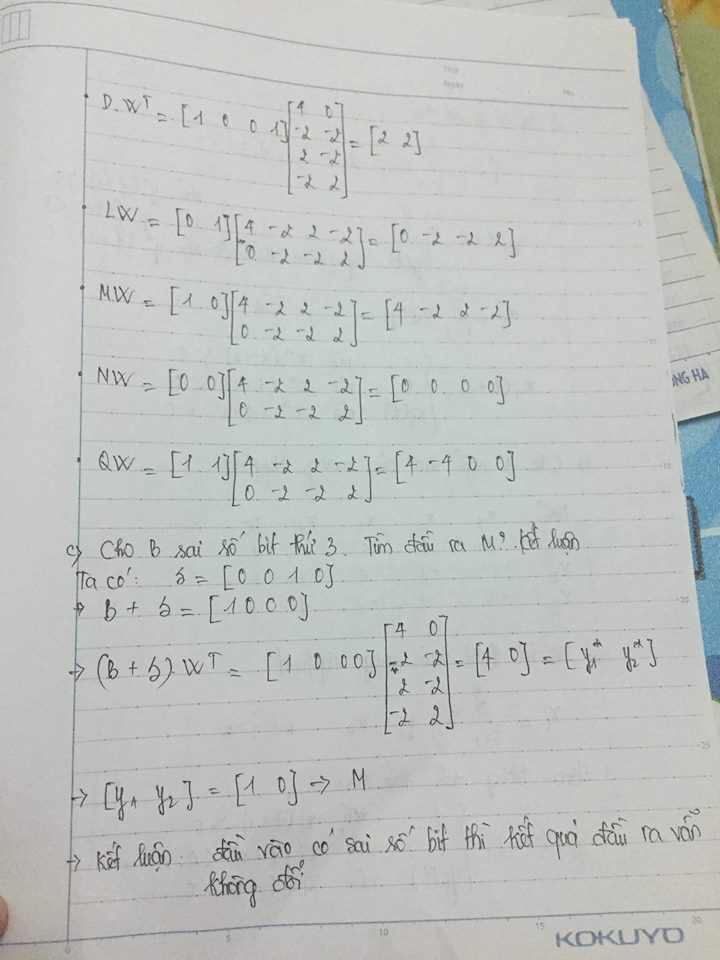 Thứ
Ngày
No.
• D.Wᵀ = [1 0 0 1] [4 0; -2 -2; 2 -2; -2 2] = [2 2]
• LW = [0 1] [4 -2 2 -2; 0 -2 -2 2] = [0 -2 -2 2]
• MW = [1 0] [4 -2 2 -2; 0 -2 -2 2] = [4 -2 2 -2]
• NW = [0 0] [4 -2 2 -2; 0 -2 -2 2] = [0 0 0 0]
• QW = [1 1] [4 -2 2 -2; 0 -2 -2 2] = [4 -4 0 0]
c, Cho B sai số bit thứ 3. Tìm đầu ra M? Kết luận
Ta có: s = [0 0 1 0]
→ B + s = [1 0 0 0]
→ (B + s).Wᵀ = [1 0 0 0] [4 0; -2 -2; 2 -2; -2 2] = [4 0] = [y₁* y₂*]
→ [y₁ y₂] = [1 0] → M
→ Kết luận. đầu vào có sai số bit thì kết quả đầu ra vẫn
không đổi
ONG HA
15
20
25
0
5
10
15
20
KOKUYO